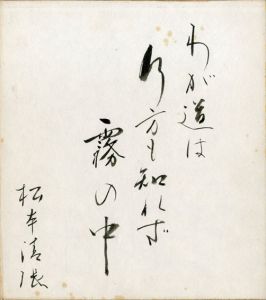 わが道は
行方も知れず
霧の中
松本清張